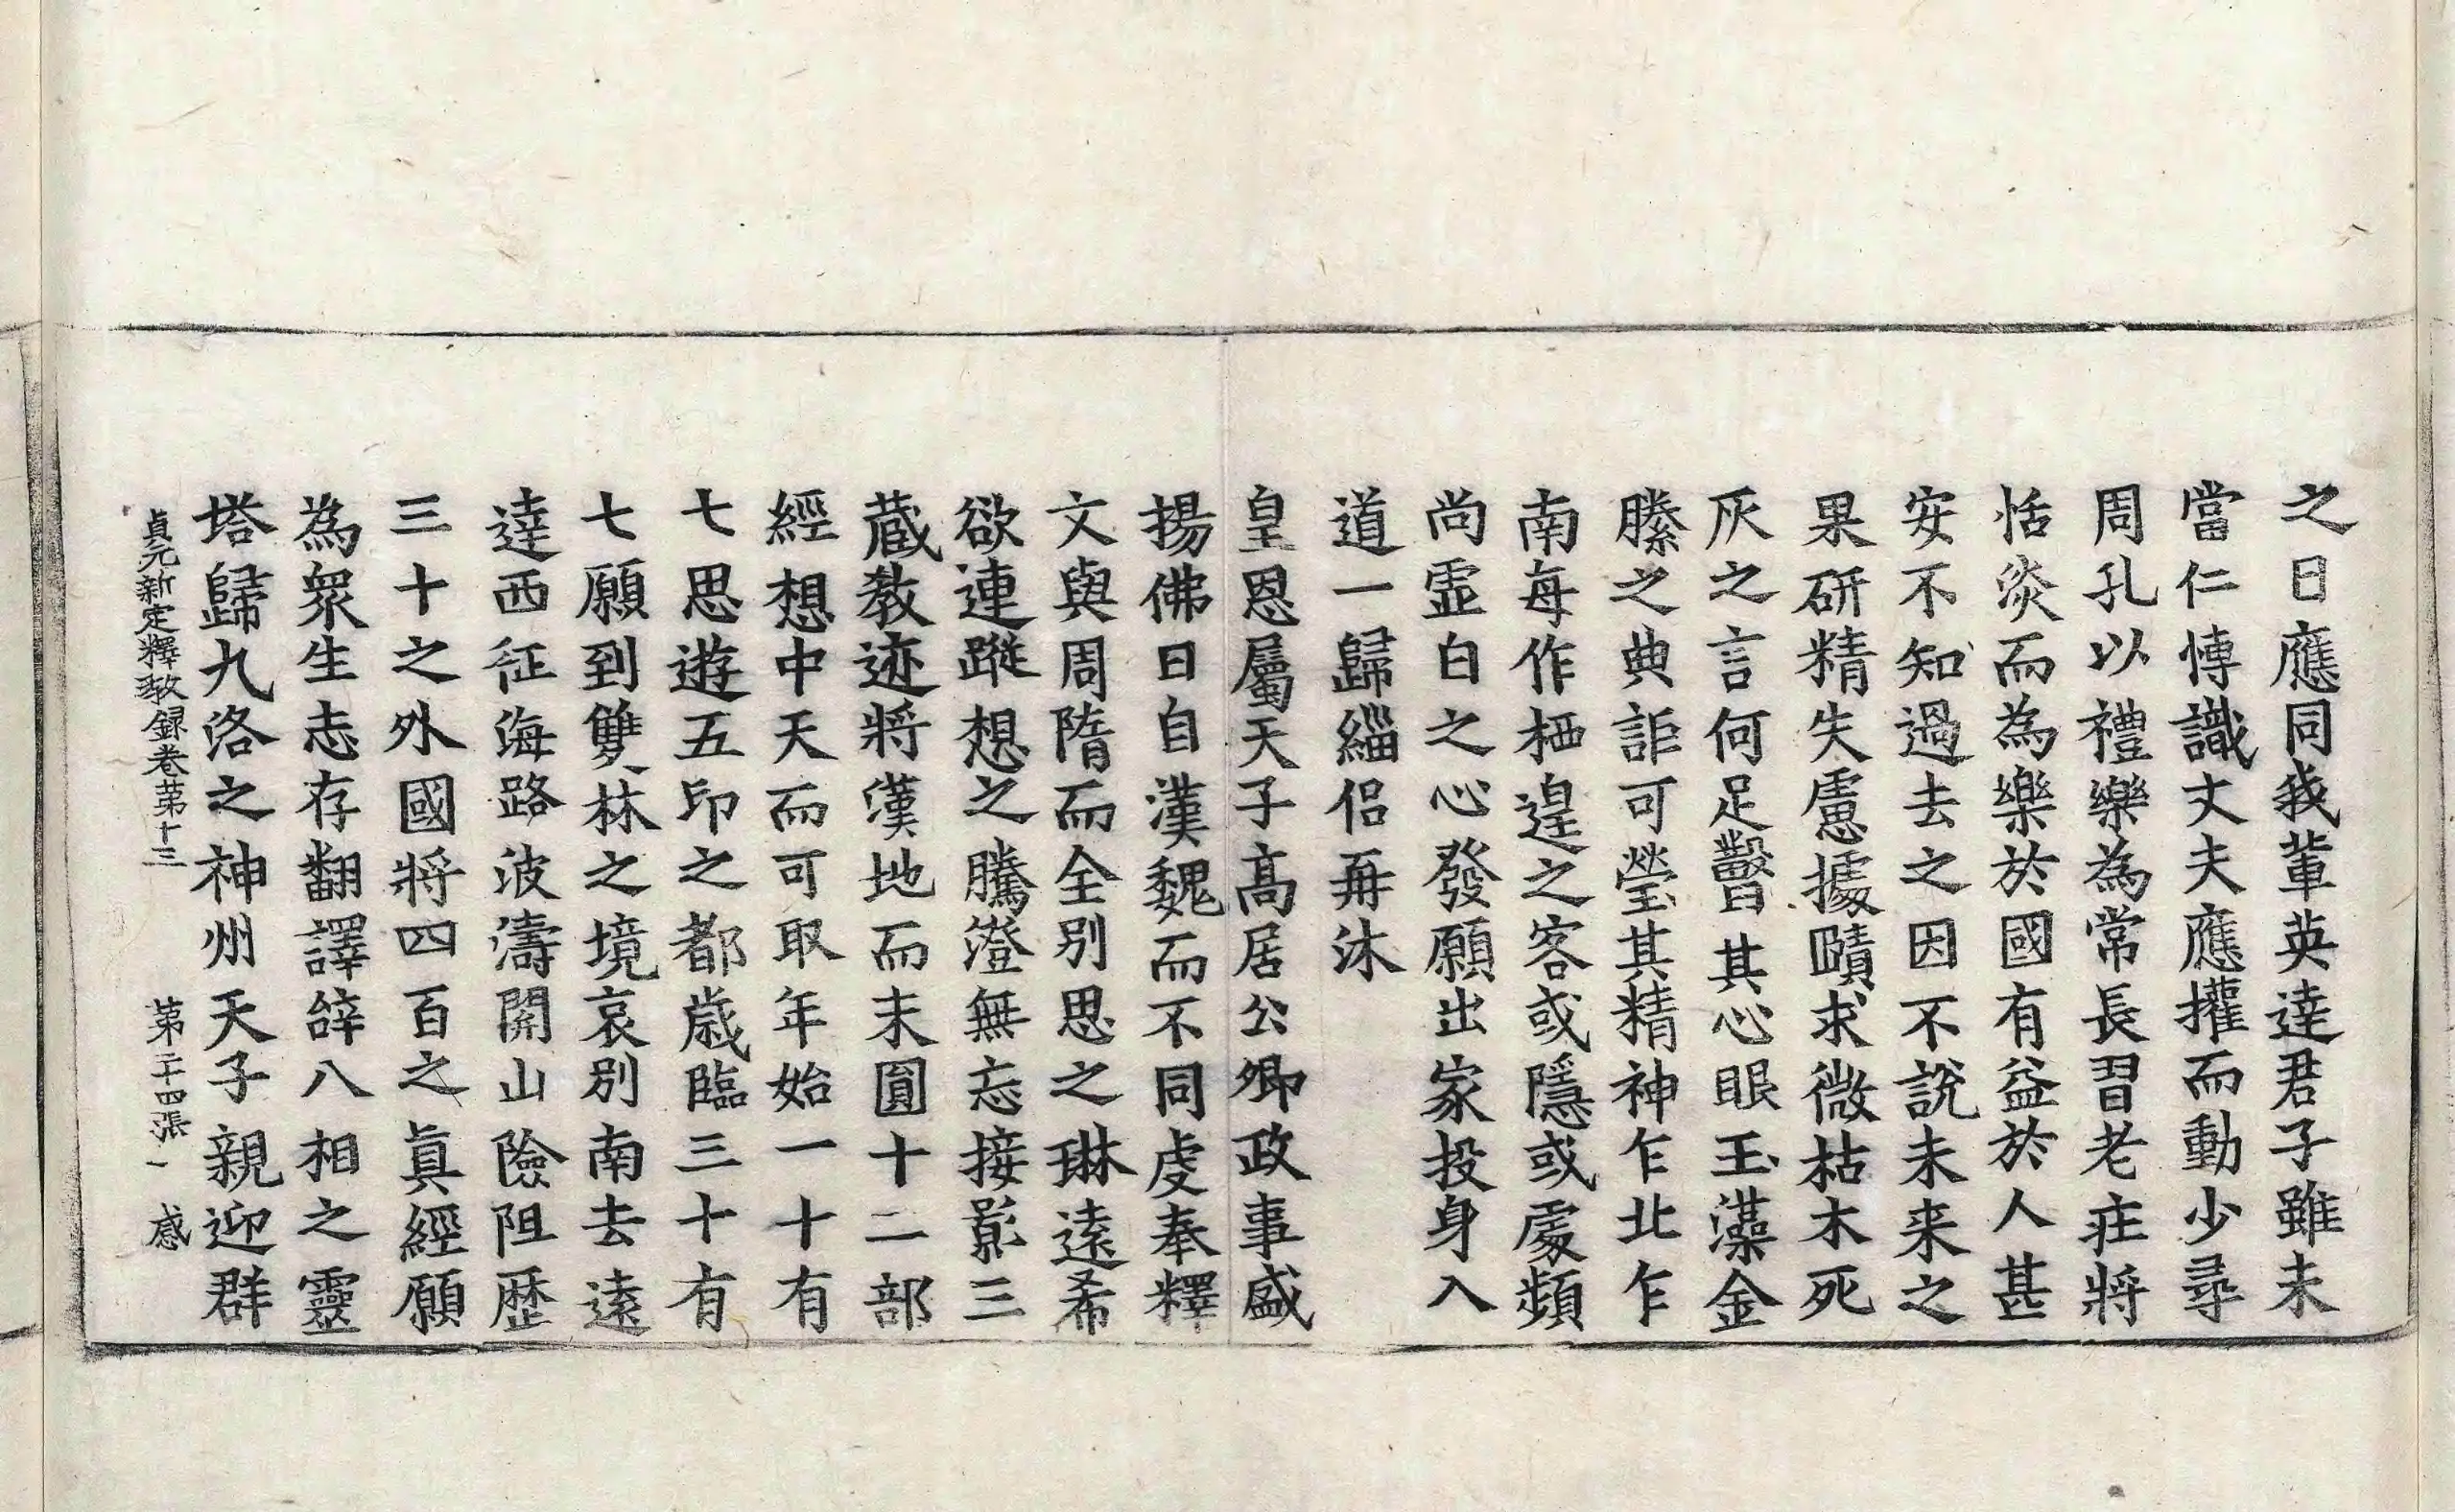 之日應同我輩英達君子雖未
當仁博識丈夫應攉而動少尋
周孔以禮樂為常長習老莊將
恬淡而為樂於國有益於人甚
安不知過去之因不說未来之
果研精失慮據賾求微枯木死
灰之言何足瞖其心眼玉藻金
縢之典詎可瑩其精神乍北乍
南每作栖遑之客或隱或處頻
尚虛白之心發願出家投身入
道一歸緇侶再沐
皇恩屬天子高居公卿政事盛
揚佛日自漢魏而不同虔奉釋
文與周隋而全別思之琳遠希
欲連蹤想之騰澄無忘接影三
藏教迹將漢地而未圓十二部
經想中天而可取年始一十有
七思遊五印之都歲臨三十有
七願到雙林之境哀別南去遠
達西征海路波濤開山險阻歷
三十之外國將四百之真經願
為眾生志存翻譯辞八相之靈
塔歸九洛之神州天子親迎群
貞元新定釋教録卷苐十三 苐二十四張 感